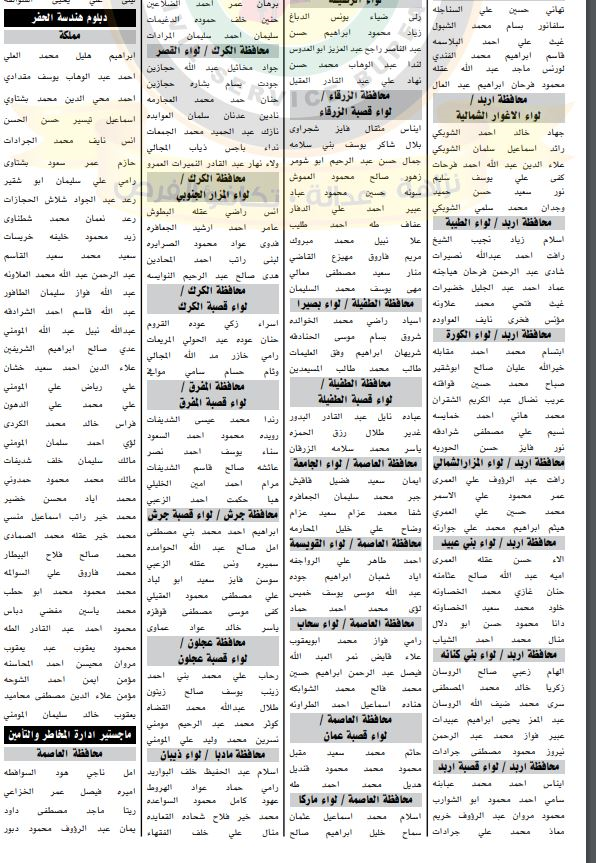 تهاني حسين علي السناجله
سلفانور بسام محمد الشبول
غيث علي احمد البلاسمه
قاسم ابراهيم محمد الفندي
لورنس ماجد عبد الله عقله
محمود فرحان ابراهيم عبد العال
محافظة اربد /
لواء الاغوار الشمالية
جهاد خالد احمد الشويكي
رائد اسماعيل سلمان الشويكي
علاء الدين عبد الله احمد فرحات
كفى علي يوسف سليم
نور سعيد حسن حميد
وجدان محمد سلمي الشويكي
محافظة اربد / لواء الطيبة
اسلام زياد نجيب الشيخ
رأفت احمد عبدالله نصيرات
شادى عبد الرحمن فرحان هياجنه
عماد احمد عبد الجليل خضيرات
غيث فتحي محمد علاونه
مؤنس فخرى نايف العواوده
محافظة اربد / لواء الكورة
ابتسام محمد احمد مقابله
خيرالله عليان صالح ابوشقير
صباح محمد حسين قواقنه
عريب نضال عبد الكريم الشقران
محمد هاني احمد خمايسه
نسيم علي مصطفى شرادقه
نور فايز حسن الحوريه
محافظة اربد / لواء المزارالشمالي
رافت عبد الرؤوف علي العمرى
عمر محمود علي الاسمر
محمد حسين علي العمري
هيثم ابراهيم محمد علي جوارنه
محافظة اربد / لواء بني عبيد
الاء حسن عقله العمرى
اميه عبد الله صالح عثامنه
حنان غازي محمد الخصاونه
خلود محمد سعيد الخصاونه
دانا محمود حسن ابو دلال
منال محمد احمد الشياب
محافظة اربد / لواء بني كنانه
الهام زعبي صالح الروسان
زكريا خالد محمد المصطفى
سرى محمد ضيف الله الروسان
عبد المعز يحيى ابراهيم عبيدات
عبير فواز محمد عبد الرحمن
نيروز محمود مصطفى جرادات
محافظة اربد / لواء قصبة اربد
ايناس احمد محمد عبابنه
سامي احمد محمود ابو الشوارب
محمود مروان عبد الرؤوف خريم
معاذ محمد علي جرادات
لواء الرصيفة
زلى ضياء يونس الدباغ
زياد محمود ابراهيم حسن
عبد الناصر راجح عبد العزيز ابو العدوس
لندا عبد الوهاب محمد حسن
نهاد علي عبد القادر العقيل
محافظة الزرقاء /
لواء قصبة الزرقاء
ايناس مثقال فايز شجراوى
بلال شاكر يوسف بني سلامه
جمال حسن عبد الرحيم ابو شومر
زهور صالح محمود العموش
سونه حسين محمود عباد
عبير احمد علي الدفار
عفاف طه احمد طليب
علا نبيل محمد مبروك
مريم فاروق مهيزع القاضي
منار سعيد مصطفى معالي
مهى يوسف محمد السليمان
محافظة الطفيلة / لواء بصيرا
اسياد راضي محمد الخوالده
شروق بسام موسى الحنادفه
شريهان ابراهيم وفق العليمات
طالب محمد طالب المسيعدين
محافظة الطفيلة /
لواء قصبة الطفيلة
عباده نايل عبد القادر البدور
غدير طلال رزق الحمزه
ياسر محمد سلامه الزرقان
محافظة العاصمة / لواء الجامعة
ايمان سعيد فضيل قاقيش
جبر محمد سليمان الجعافره
شفا محمد عزام سعيد عزام
وضاح علي خليل المحارمه
محافظة العاصمة / لواء القويسمة
احمد طاهر علي الرواجفه
اياد شعبان ابراهيم جوده
عبد الله موسى يوسف خميس
لؤى محمد احمد حماد
محافظة العاصمة / لواء سحاب
رامي فواز محمد ابويعقوب
علاء فايض نمر العبد الله
فيصل عبد الرحمن ابراهيم حسين
محمد فالح محمد الشوابكه
هناده اسماعيل احمد الطراونه
محافظة العاصمة /
لواء قصبة عمان
حاتم محمد سعيد مقبل
محمود محمد محمود قنديل
هديل محمد احمد طه
محافظة العاصمة / لواء ماركا
اسلام محمد اسماعيل عثمان
سماح خليل ابراهيم صالح
برهان عمر احمد الضلاعين
حنين خلف حموده الدغيمات
سليمان احمد سليمان المرادات
محافظة الكرك / لواء القصر
جواد مخائيل عبد الله حجازين
جودت بسام بشاره حجازين
حنان حمد محمد المعجارمه
نادين عدنان سلمان العوابده
نازك عبد الحميد محمد الجمعات
نداء باجس ذياب المجالي
ولاء نهار عبد القادر النميرات العمرو
محافظة الكرك /
لواء المزار الجنوبي
انس راضي عقله البطوش
عامر احمد ارشيد الجعافره
فدوى عواد محمود الصرايره
لبنى راتب احمد المحادين
هدى صالح عبد الرحيم النوايسه
محافظة الكرك /
لواء قصبة الكرك
اسراء زكي عوده القروم
حنان عوده عبد الحولي المريعات
رامي خازر مد الله المجالي
وئام حسام سامي موافي
محافظة المفرق /
لواء قصبة المفرق
رندا محمد عيسى الشديفات
رويده محمود احمد السعود
سناء يوسف احمد نصر
عائشه صالح قاسم الشديفات
مرام احمد امين الخليلي
هيا حكمت احمد الزعبي
محافظة جرش / لواء قصبة جرش
ابراهيم احمد محمد بني مصطفى
امل صالح عبد الله الحوامده
سميره ونس عقله الزعبي
سوسن فايز سعيد ابو لباد
علي مصطفى محمود العقيلي
كفى موسى مصطفى قوقزه
ياسر خالد عواد عماوى
محافظة عجلون /
لواء قصبة عجلون
رحاب علي محمد بني احمد
زينب يوسف صالح زيتون
طلال عبدالله محمد القضاه
كوثر محمد عبد الرحيم مومني
نسرين محمد وليد علي المومني
محافظة مادبا / لواء ذيبان
اسلام عبد الحفيظ خلف البواريد
رامي حماد عواد الهروط
عهود كامل محمود السواعده
محمد خير فلاح شحاده القعايده
منال علي خلف الفقهاء
دبلوم هندسة الحفر
مملكة
ابراهيم هليل محمد العلي
احمد عبد الوهاب يوسف مقدادي
احمد محي الدين محمد بشتاوي
اسماعيل تيسير حسن الحسن
انس نايف محمد الجرادات
حازم عمر سعود بشتاوى
رامي علي سليمان ابو شقير
رعد عبد الجواد شلاش الحجازات
رعد نعمان محمد شطناوى
زيد محمود خليفه خريسات
سعيد محمد سعيد القاسم
عبد الرحمن عبد الله محمد العلاونه
عبد الله فواز سليمان الطافور
عبد الله قاسم احمد الشرادقه
عبدالله نبيل عبد الله المومني
عدي صالح ابراهيم الشريفين
علاء الدين احمد سعيد خشان
علي رياض علي المومني
علي محمد علي الدهون
فراس خالد محمد الكردى
لؤي احمد سلمان المومني
مالك سليمان خلف شديفات
مالك محمد محمود حمدوني
محمد اياد محسن خضير
محمد خير راتب اسماعيل منسي
محمد خير عقله محمد الصمادى
محمد صالح فلاح البيطار
محمد فاروق علي السوالمه
محمد محمود محمد ابو حطب
محمد ياسين مفضي دباس
محمود احمد عبد القادر الطه
محمود يعقوب عبد يعقوب
مروان محيسن احمد المحاسنه
مؤمن ايمن احمد الشوحه
مؤمن علاء الدين مصطفى محاميد
يعقوب خالد سليمان المومني
ماجستير ادارة المخاطر والتأمين
محافظة العاصمة
امل ناجي هود السوافطه
اميره فيصل عمر الخزاعي
ريتا ماجد مصطفى داود
يمان عبد الرؤوف محمود دبور